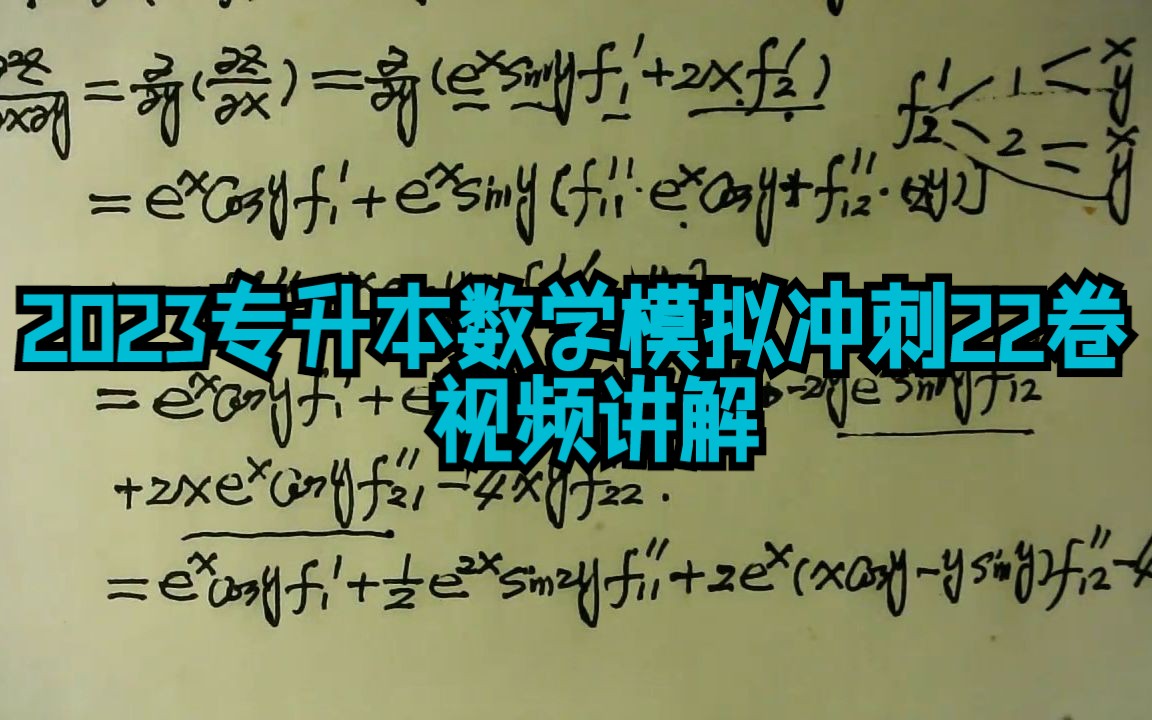 ∂²z/∂x∂y = ∂/∂y (∂z/∂x) = ∂/∂y (eˣ sin y f₁′ + 2x f₂′)
f₂′ 1 x y 2 x y
= eˣ cos y f₁′ + eˣ sin y [f₁₁″ · eˣ cos y + f₁₂″ · (-2y)]
2023专升本数学模拟冲刺22卷
视频讲解
= eˣ cos y f₁′ + e -2y eˣ sin y f₁₂
+ 2x eˣ cos y f₂₁″ - 4xy f₂₂″ .
= eˣ cos y f₁′ + 1/2 e²ˣ sin 2y f₁₁″ + 2eˣ (x cos y - y sin y) f₁₂″ - 4